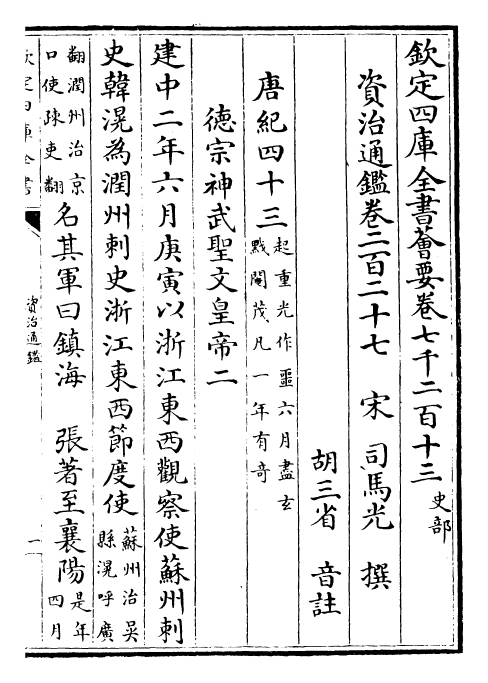 欽定四庫全書薈要卷七千二百十三 史部
資治通鑑卷二百二十七 宋 司馬光 撰
胡三省 音註
唐紀四十三 起重光作噩六月盡玄
黓閹茂凡一年有奇
德宗神武聖文皇帝二
建中二年六月庚寅以浙江東西觀察使蘇州刺
史韓滉為潤州刺史浙江東西節度使 蘇州治吳
縣滉呼廣
翻潤州治京
口使疎吏翻
名其軍曰鎮海 張著至襄陽 是年
四月
欽定四庫全書
資治通鑑
一